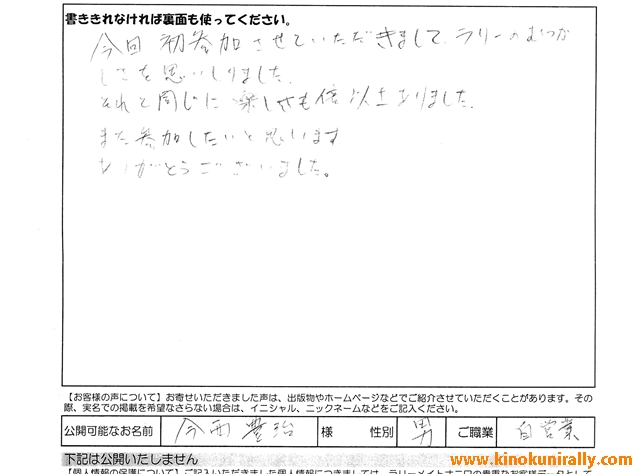 書ききれなければ裏面も使ってください。
今回 初参加させていただきまして、ラリーのむつか
しさを思いしりました。
それと同じに 楽しさも倍以上ありました。
また参加したいと思います
ありがとうございました。
【お客様の声について】お寄せいただきました声は、出版物やホームページなどでご紹介させていただくことがあります。その
際、実名での掲載を希望なさらない場合は、イニシャル、ニックネームなどをご記入ください。
公開可能なお名前 今西 豊治 様 性別 男 ご職業 自営業
下記は公開いたしません
【個人情報の保護について】ご記入いただきました個人情報につきましては、ラリーメイト
www.kinokunirally.com